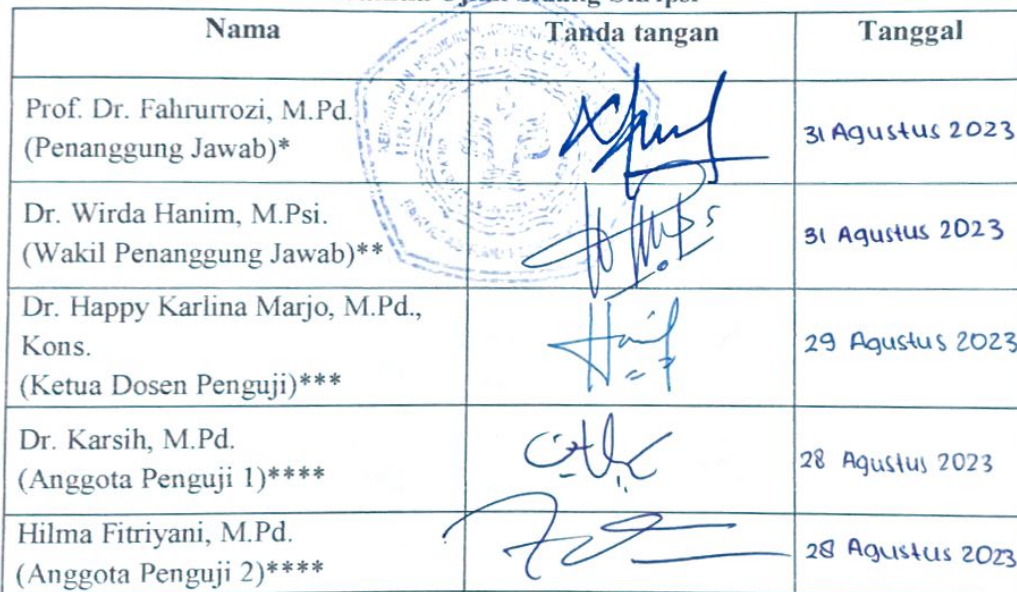 Nama
Tanda tangan
Tanggal
Prof. Dr. Fahrurrozi, M.Pd.
(Penanggung Jawab)*
31 Agustus 2023
Dr. Wirda Hanim, M.Psi.
(Wakil Penanggung Jawab)**
31 Agustus 2023
Dr. Happy Karlina Marjo, M.Pd.,
Kons.
(Ketua Dosen Penguji)***
29 Agustus 2023
Dr. Karsih, M.Pd.
(Anggota Penguji 1)****
28 Agustus 2023
Hilma Fitriyani, M.Pd.
(Anggota Penguji 2)****
28 Agustus 2023